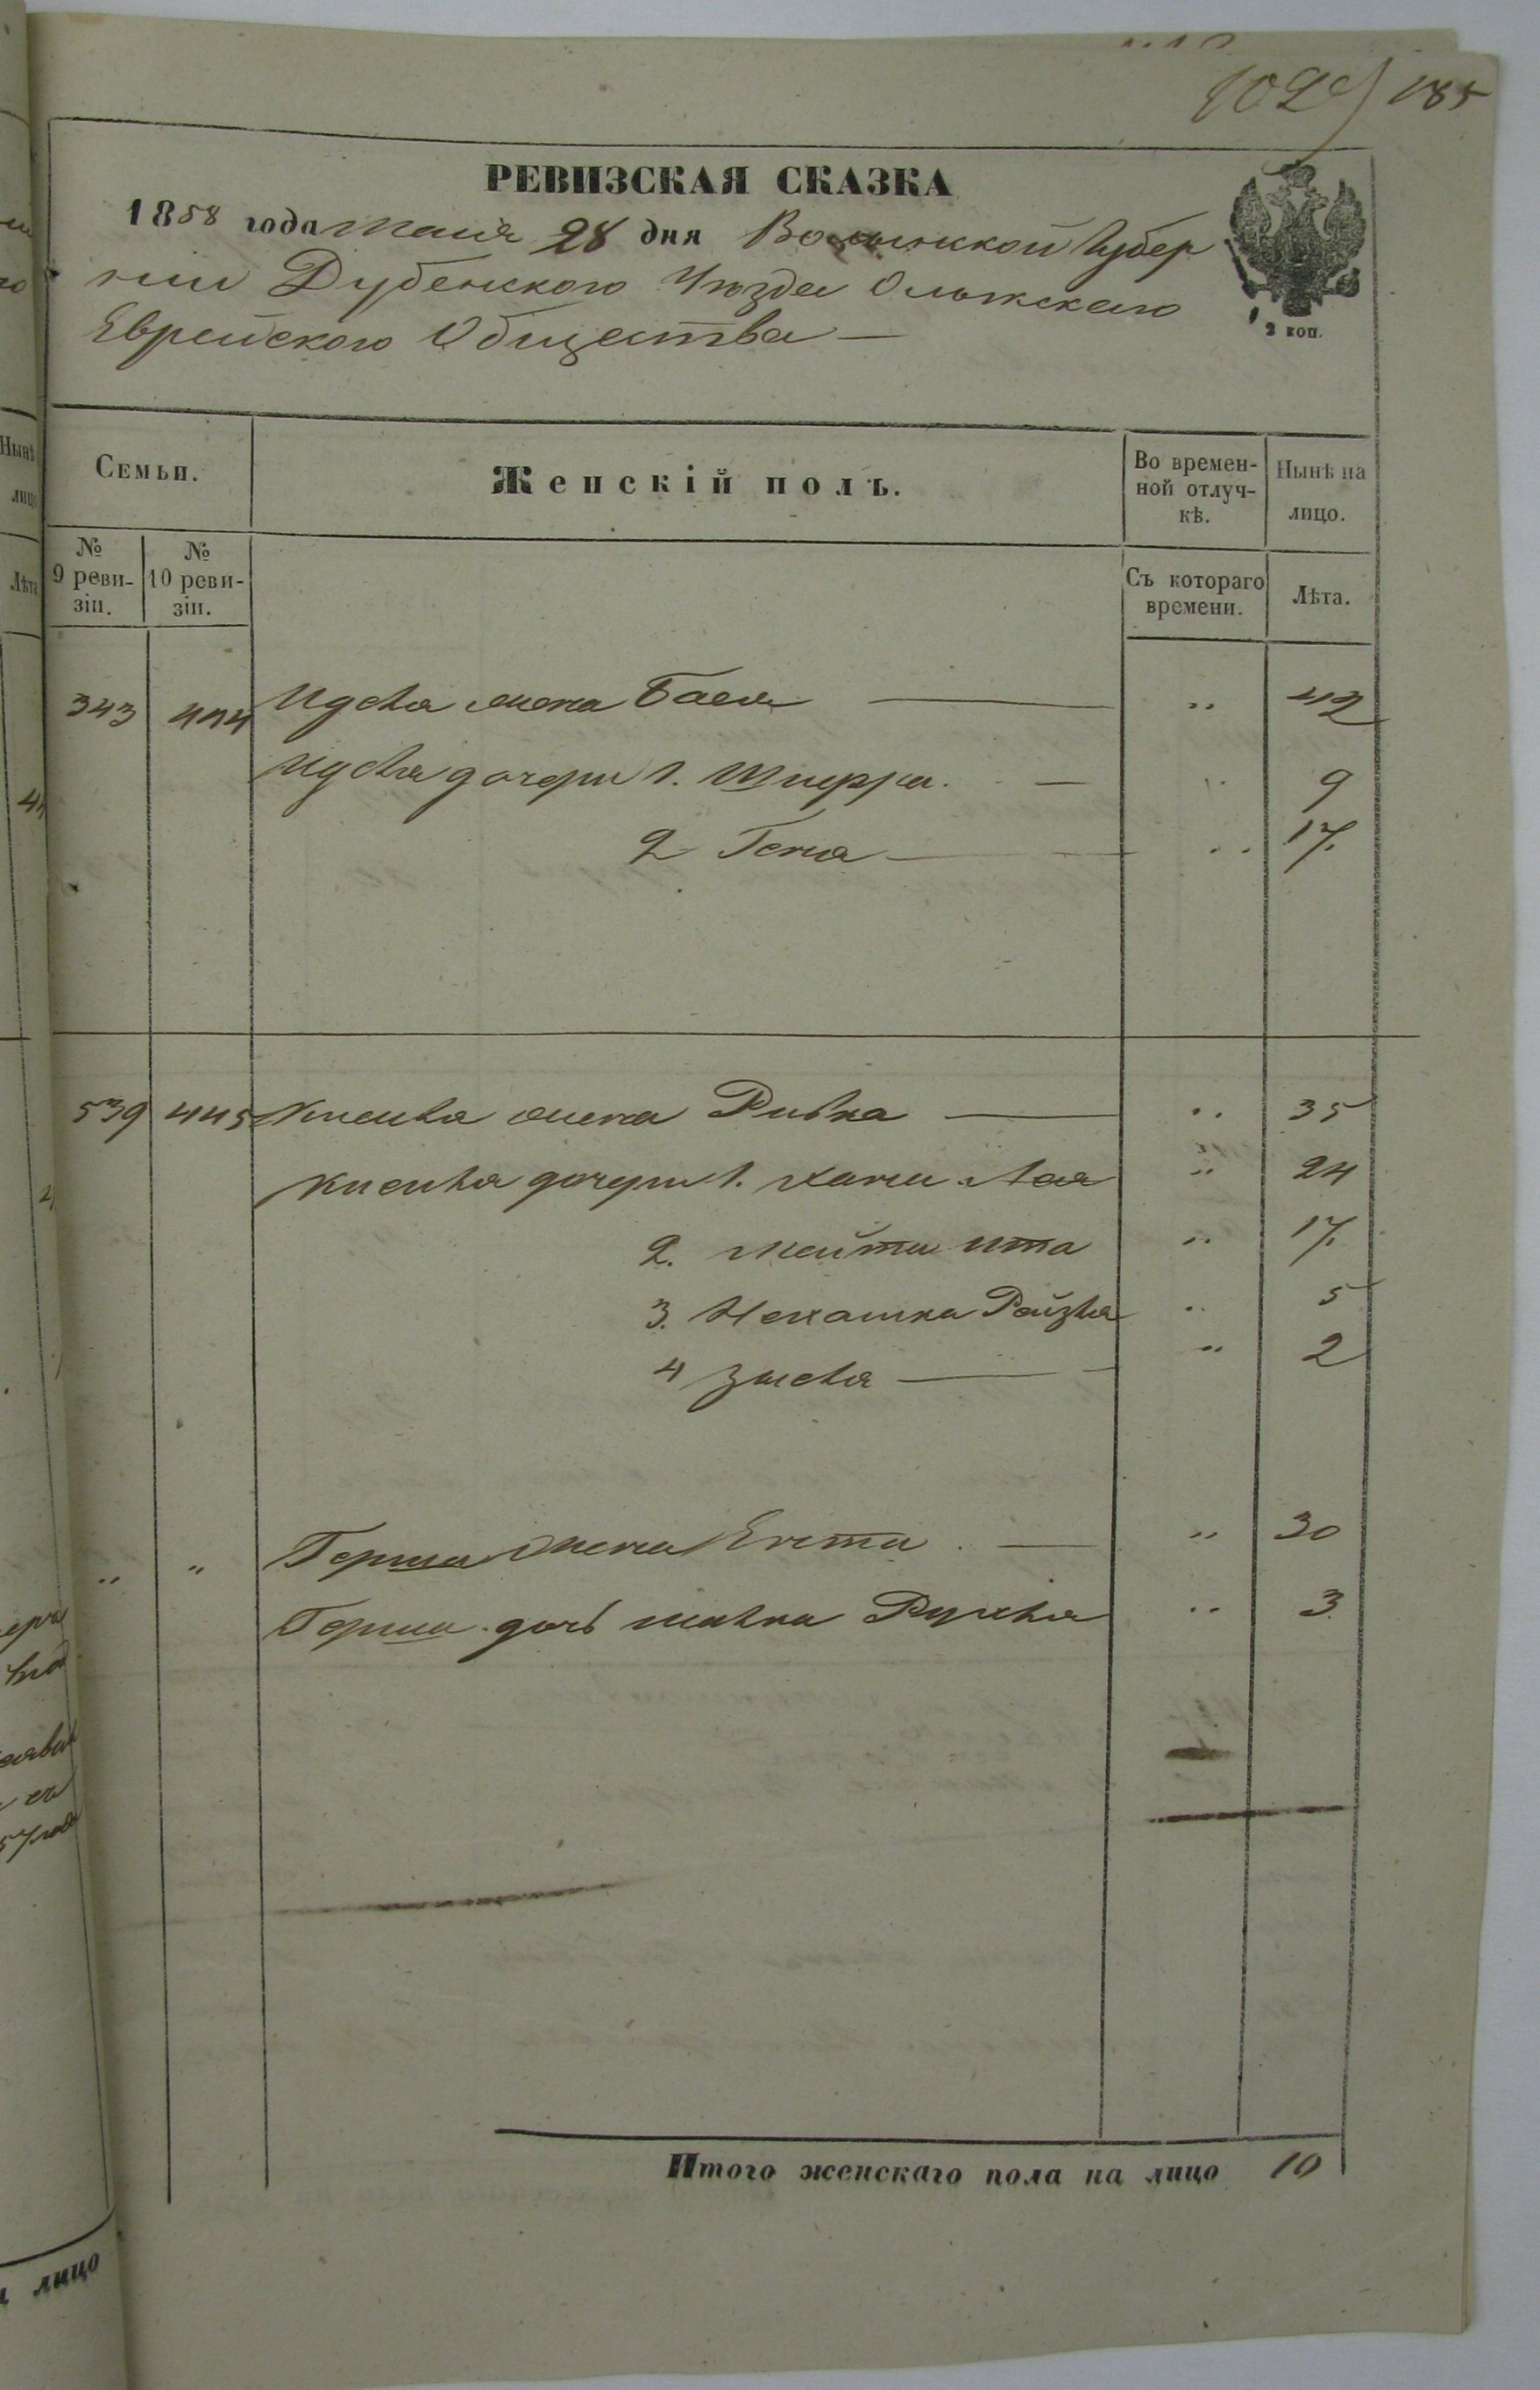 185
РЕВИЗСКАЯ СКАЗКА
1858 года Маия 28 дня Волынской Губер
нии Дубенского Уезда Олыкского
Еврейского Общества —
2 коп.
Семьи.
Женскій полъ.
Во времен-
ной отлуч-
кѣ.
Нынѣ на
лицо.
№
9 реви-
зіи.
№
10 реви-
зіи.
Съ котораго
времени.
Лѣта.
343 444 жена Бася — " 42
дочери 1. Шифра. — " 9
2 Геня — " 17.
539 445 жена Ривка — " 35
дочери 1. Хана Лея " 24
2. Мейта Ита " 17.
3. Нехашка Рейзля " 5
4 Зысля — " 2
" " Герша жена Ента. — " 30
Герша дочь Рухля " 3
Итого женскаго пола на лицо 10